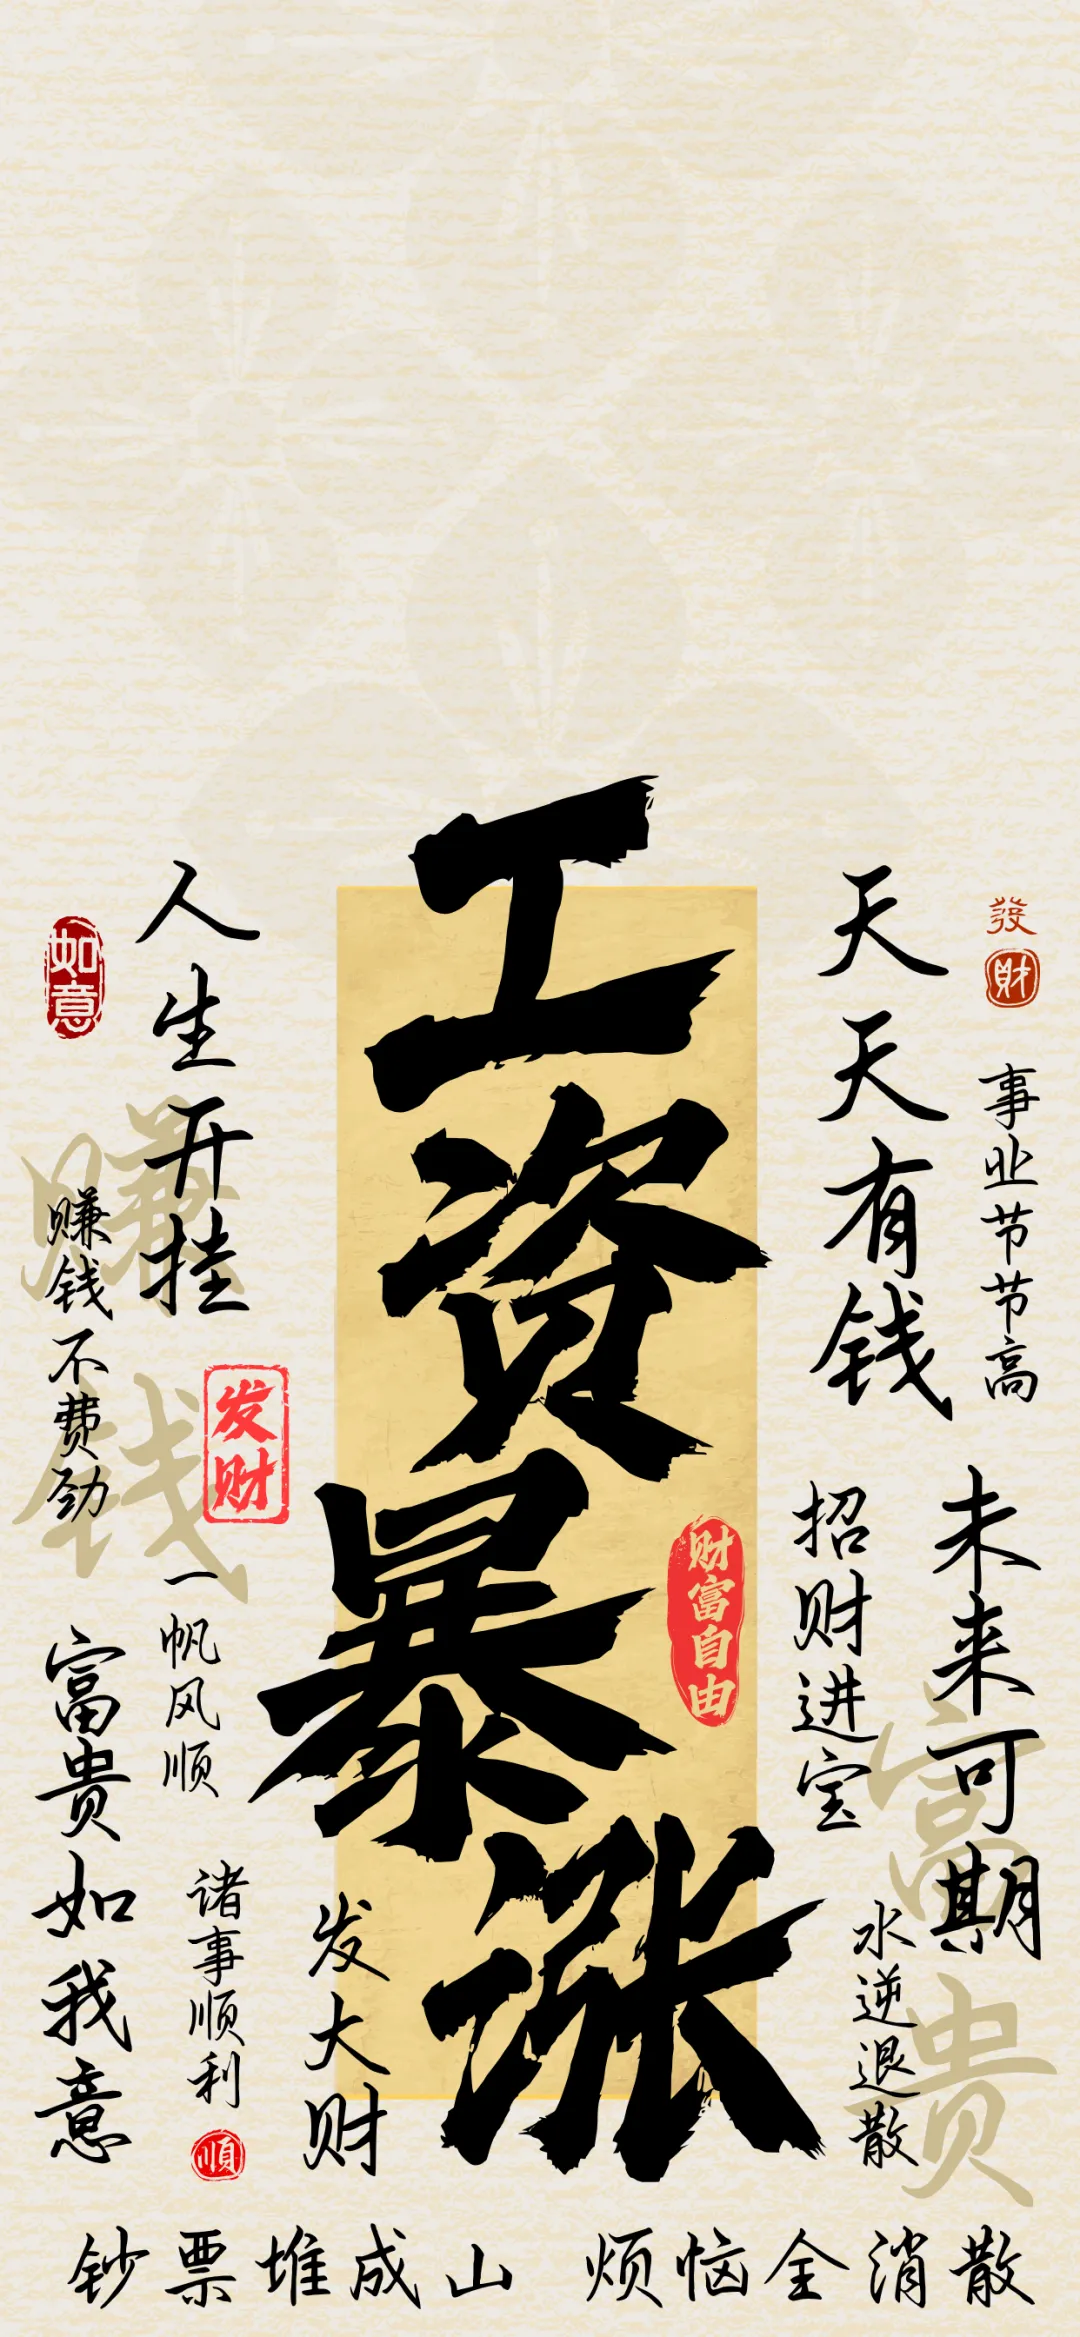 工资暴涨
财富自由
人生开挂
如意
赚钱
赚钱不费劲
发财
一帆风顺
富贵如我意
诸事顺利
順
发大财
天天有钱
發財
事业节节高
招财进宝
未来可期
富贵
水逆退散
钞票堆成山 烦恼全消散